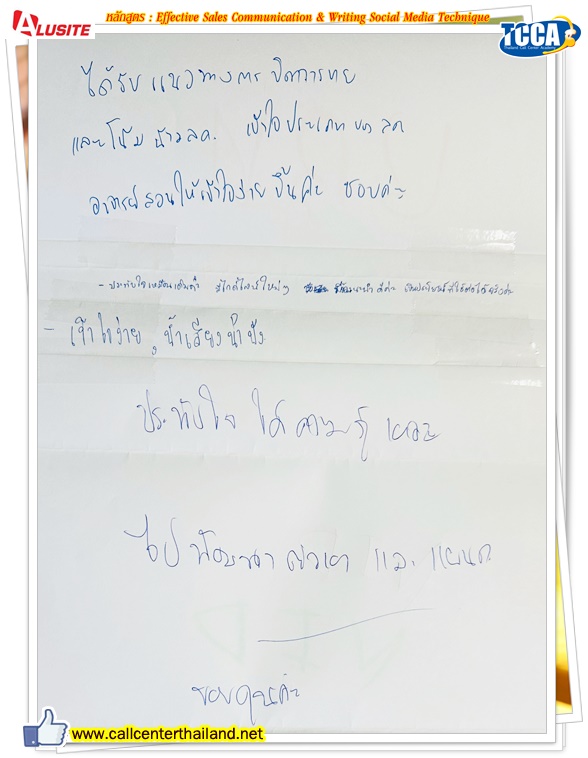 ALUSITE
หลักสูตร : Effective Sales Communication & Writing Social Media Technique
TCCA
Thailand Call Center Academy
ได้รับแนวทางการปิดการขาย
และโน้มน้าวลค. เข้าใจประเภทของลค
อาจารย์สอนให้เข้าใจง่ายขึ้นค่ะ ชอบค่ะ
- ประทับใจเหมือนเดิมค่ะ
- เข้าใจง่าย, น้ำเสียงน่าฟัง
ประทับใจ ได้ความรู้
ไปพัฒนา และ
ขอบคุณค่ะ
www.callcenterthailand.net